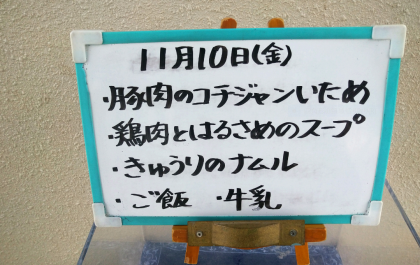 11月10日(金)
・豚肉のコチジャンいため
・鶏肉とはるさめのスープ
・きゅうりのナムル
・ご飯 ・牛乳